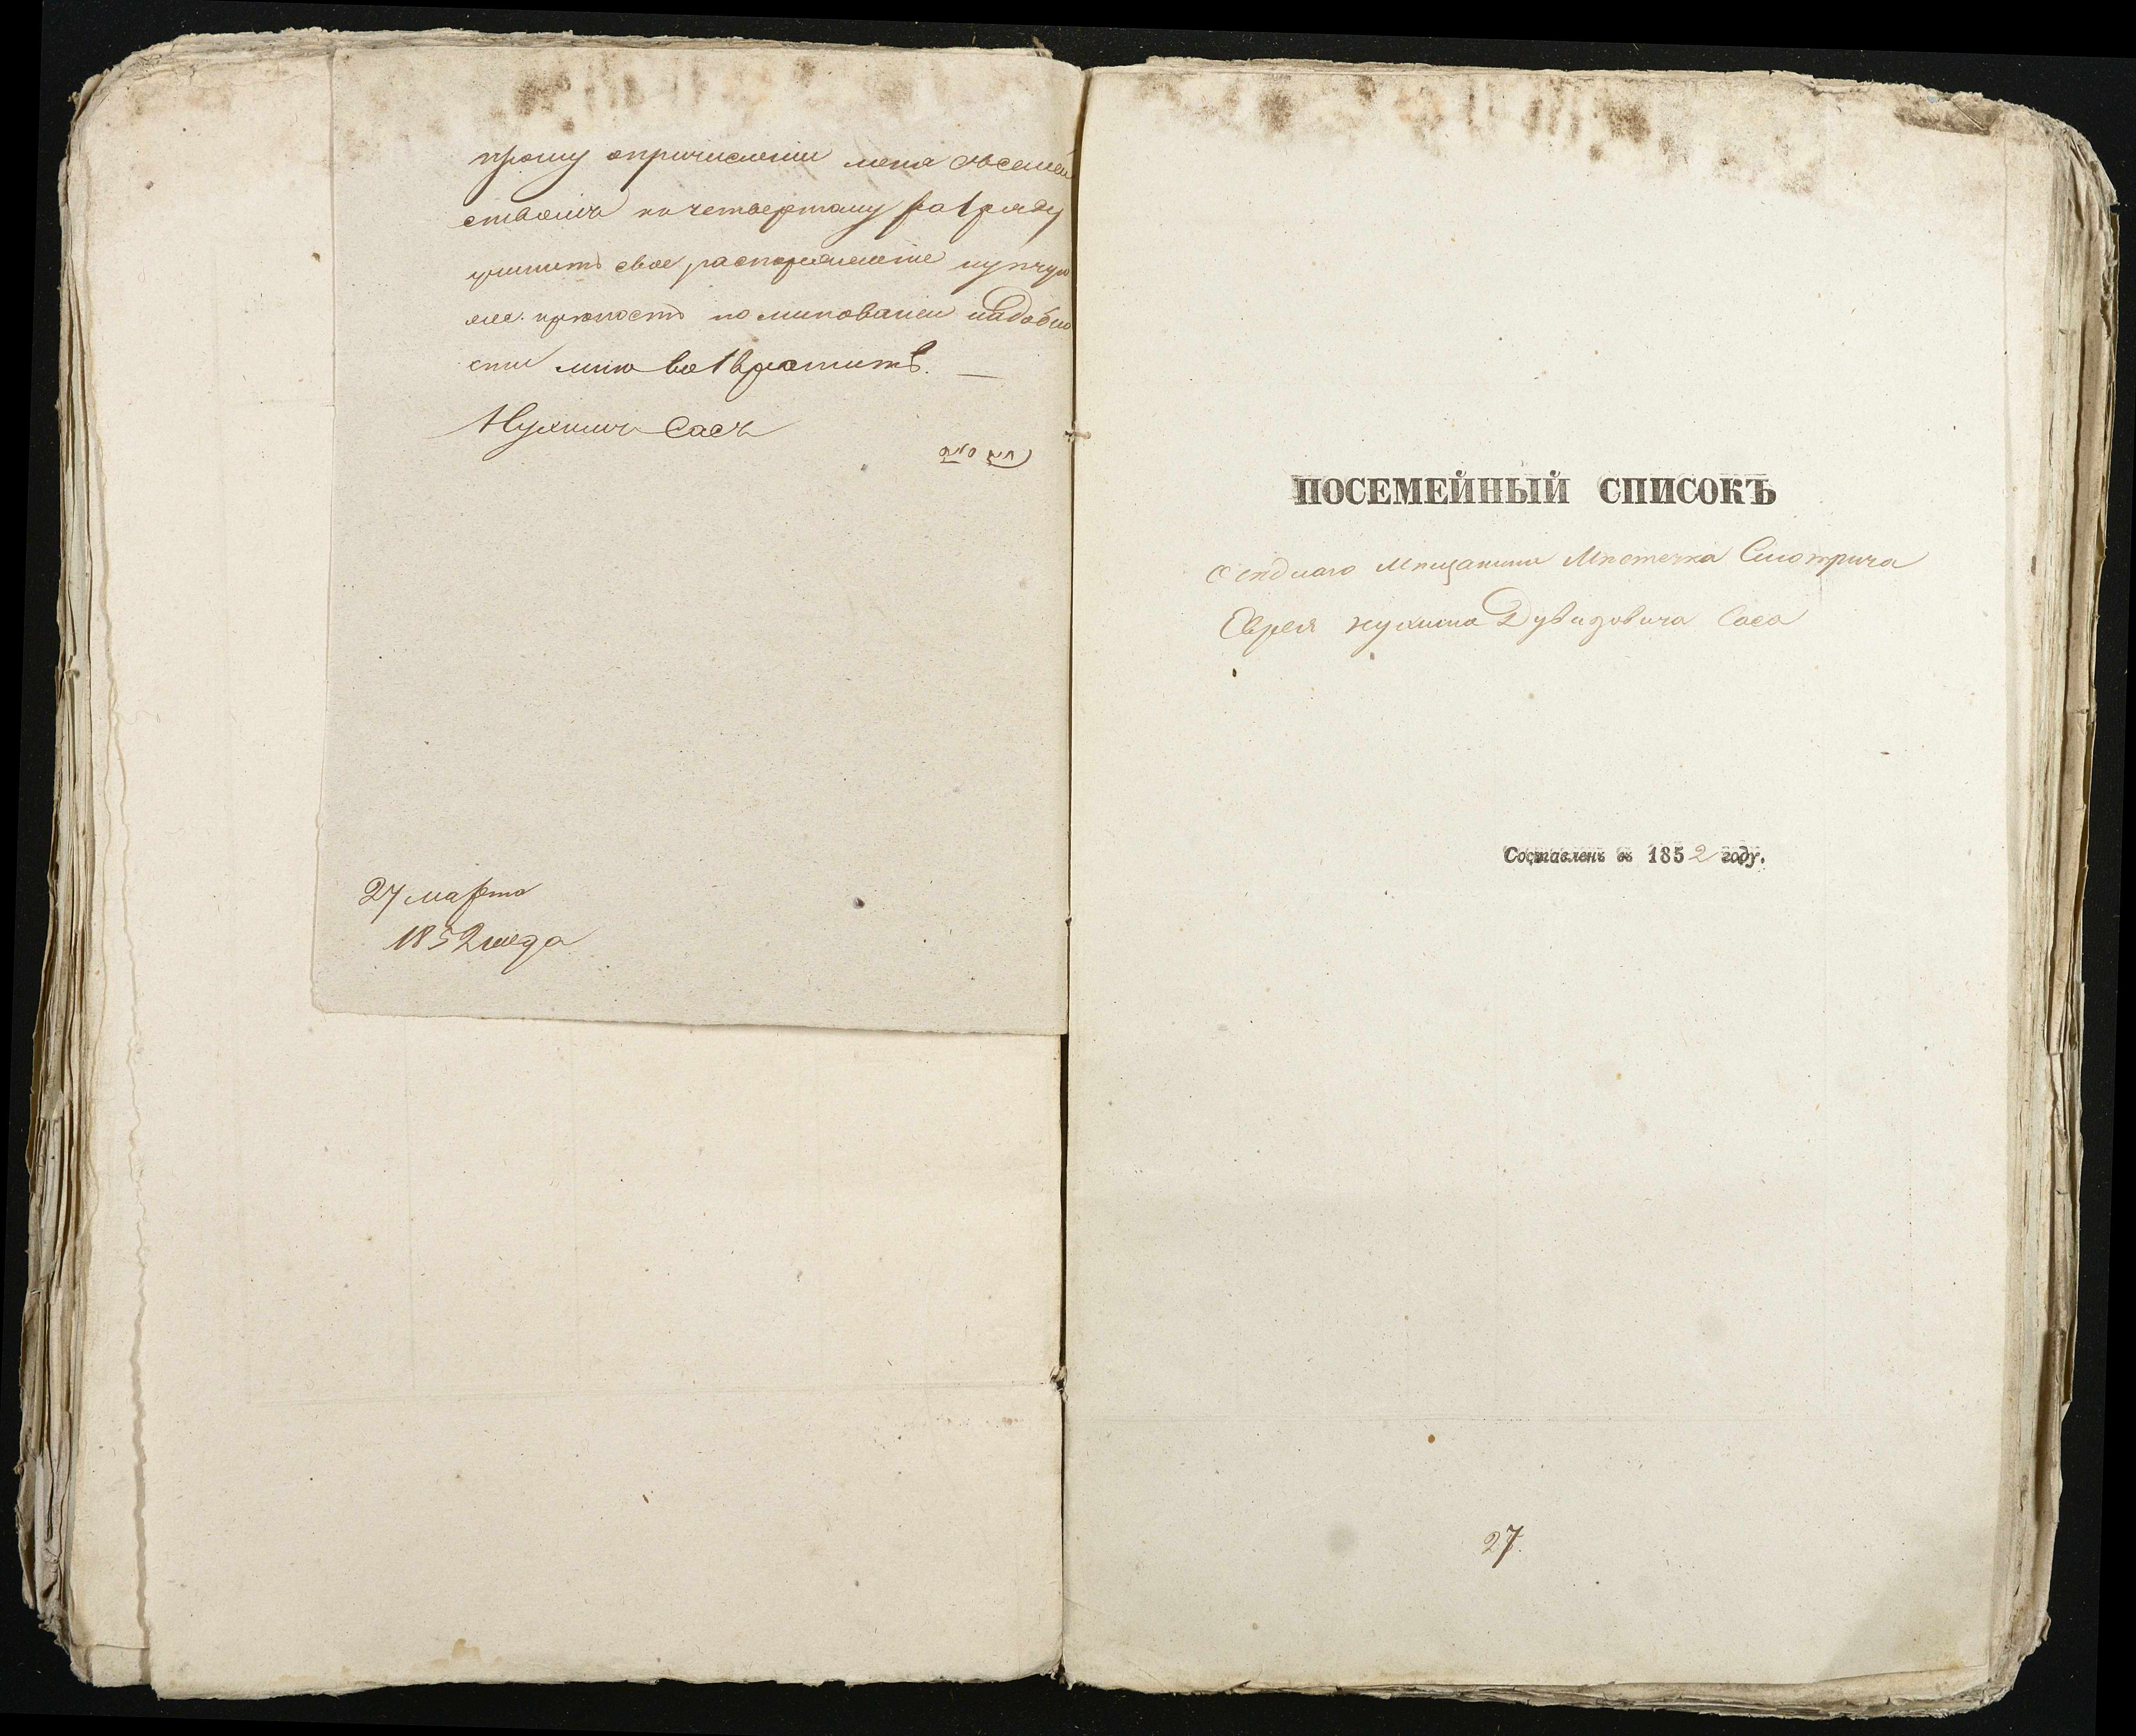 прошу опричислении меня съсемей
ствомъ кчетвертому разряду
учинить свое распоряженіе купчую
же крѣпость по минованіи надобно
сти мнѣ возвратить. —
Нухимъ Сасъ
27 марта
1852 года
ПОСЕМЕЙНЫЙ СПИСОКЪ
Осѣдлаго Мѣщанина Мѣстечка Смотрича
Еврея Нухима Дувидовича Саса
Составленъ въ 1852 году.
27.